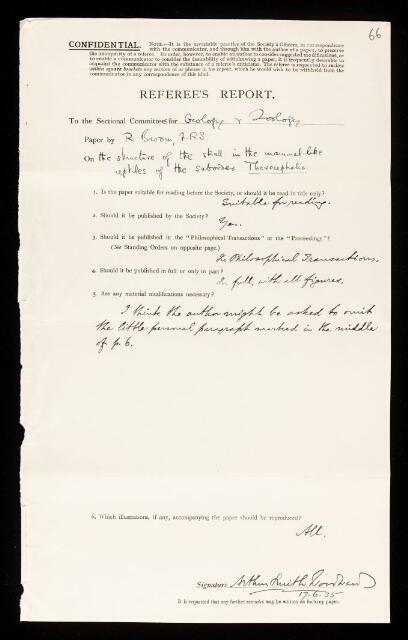 66
CONFIDENTIAL. NOTE.—It is the invariable practice of the Society's Officers, in correspondence
with the communicator, and through him with the author of a paper, to preserve
the anonymity of a referee. In order, however, to enable an author to consider suggested modifications, or
to enable a communicator to consider the desirability of withdrawing a paper, it is frequently desirable to
acquaint the communicator with the substance of a referee's criticisms. The referee is requested to enclose
within square brackets any section of or phrase in the report, which he would wish to be withheld from the
communicator in any correspondence of this kind.
REFEREE'S REPORT.
To the Sectional Committees for Geology & Zoology
Paper by R Broom, F.R.S.
On the structure of the skull in the mammal-like
reptiles of the suborder Therocephalia.
1. Is the paper suitable for reading before the Society, or should it be read in title only?
Suitable for reading.
2. Should it be published by the Society?
Yes.
3. Should it be published in the "Philosophical Transactions" or the "Proceedings"?
(See Standing Orders on opposite page.)
In Philosophical Transactions.
4. Should it be published in full or only in part?
In full, with all figures.
5. Are any material modifications necessary?
I think the author might be asked to omit
the little personal paragraph marked in the middle
of p. 6.
6. Which illustrations, if any, accompanying the paper should be reproduced?
All.
Signature Arthur Smith Woodward
17.6.35
It is requested that any further remarks may be written on foolscap paper.